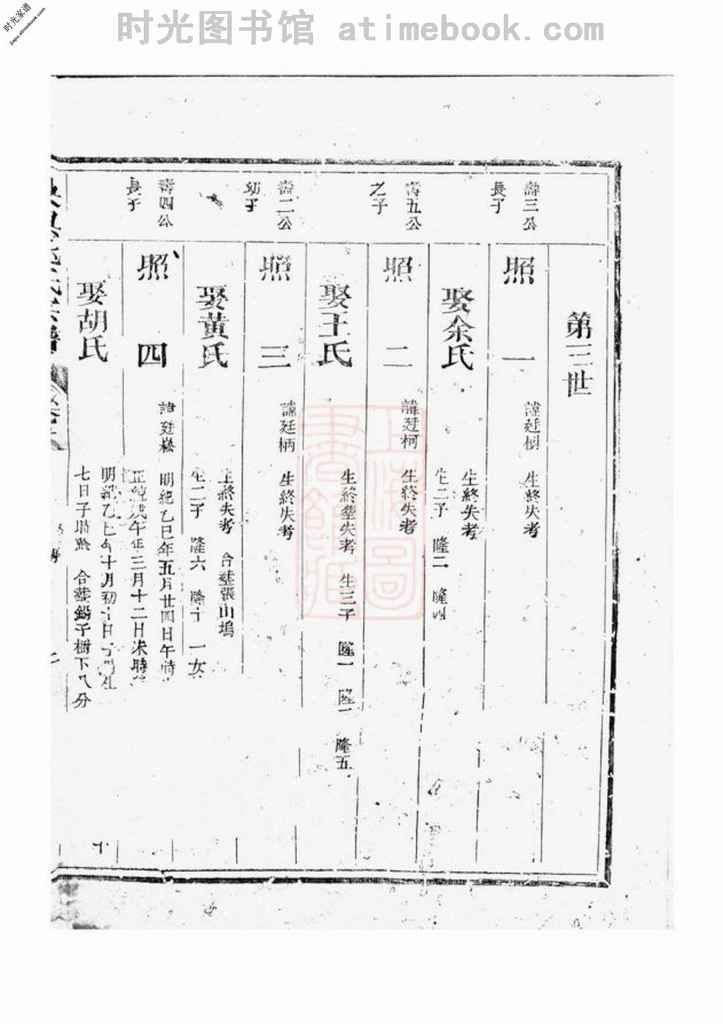 时光家谱
jiapu.atimebook.com
时光图书馆 atimebook.com
第三世
壽三公
長子
照一
諱廷
生終失考
娶余氏
生終失考
生二子 隆二 隆四
壽五公
之子
照二
諱廷柯
生終失考
娶王氏
生終塟失考 生三子 隆一 隆 隆五
壽二公
幼子
照三
諱廷柄
生終失考
娶黃氏
生終失考 合塟張山塢
生二子 隆六 隆十 一女
壽四公
長子
照四
諱廷崧
明統乙巳年五月廿四日午時
正統戊午年三月十二日未時
娶胡氏
明統乙 年十月初十日子時生
七日子時 合塟錫子樹下八分
上海圖書館藏